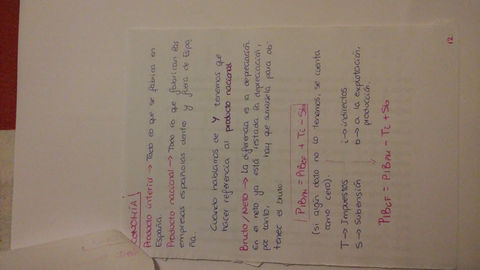 ECONOMÍA
Producto interior → Todo lo que se fabrica en
España.
Producto nacional → Todo lo que fabrican las
empresas españolas dentro y fuera de Espa
ña.
Cuando hablamos de Y tenemos que
hacer referencia al producto nacional
Bruto/Neto → La diferencia es la depreciación
En el neto ya está restada la depreciación,
por tanto, hay que sumarsela para ob-
tener el bruto.
PIBpm = PIBcf + Ti - Sb
(si algún dato no lo tenemos, se cuenta
como cero).
T → Impuestos i → indirectos
S → Subvención b → a la explotación,
producción.
PIBcf = PIBpm - Ti + Sb
12